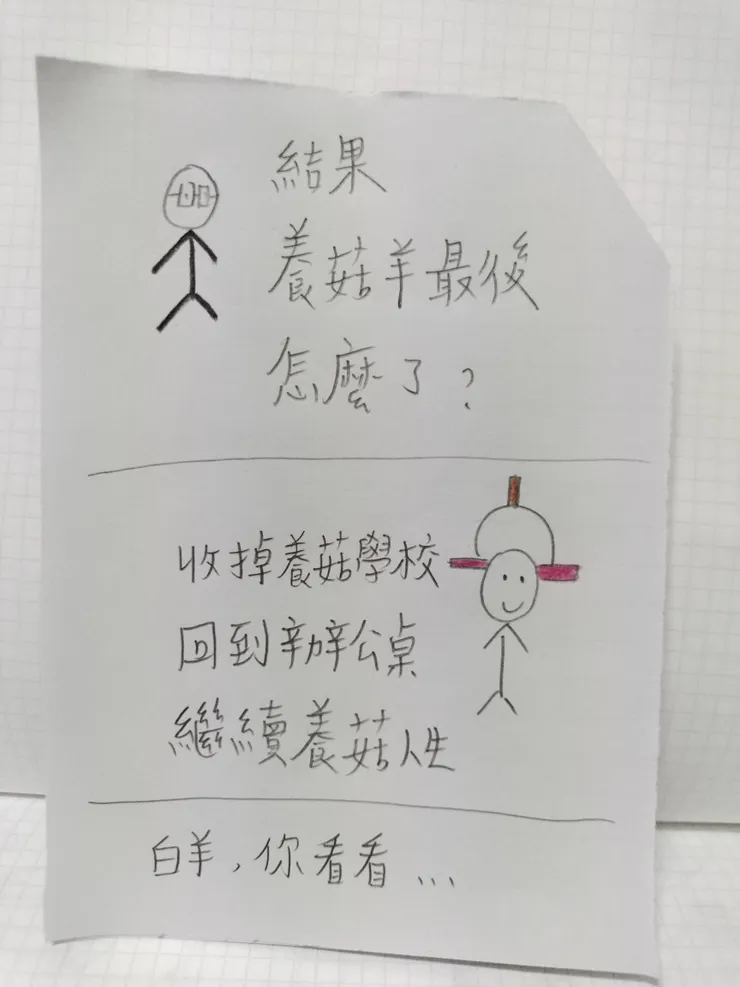 結果
養菇羊最後
怎麼了?
收掉養菇學校
回到辦公桌
繼續養菇人生
白羊,你看看...